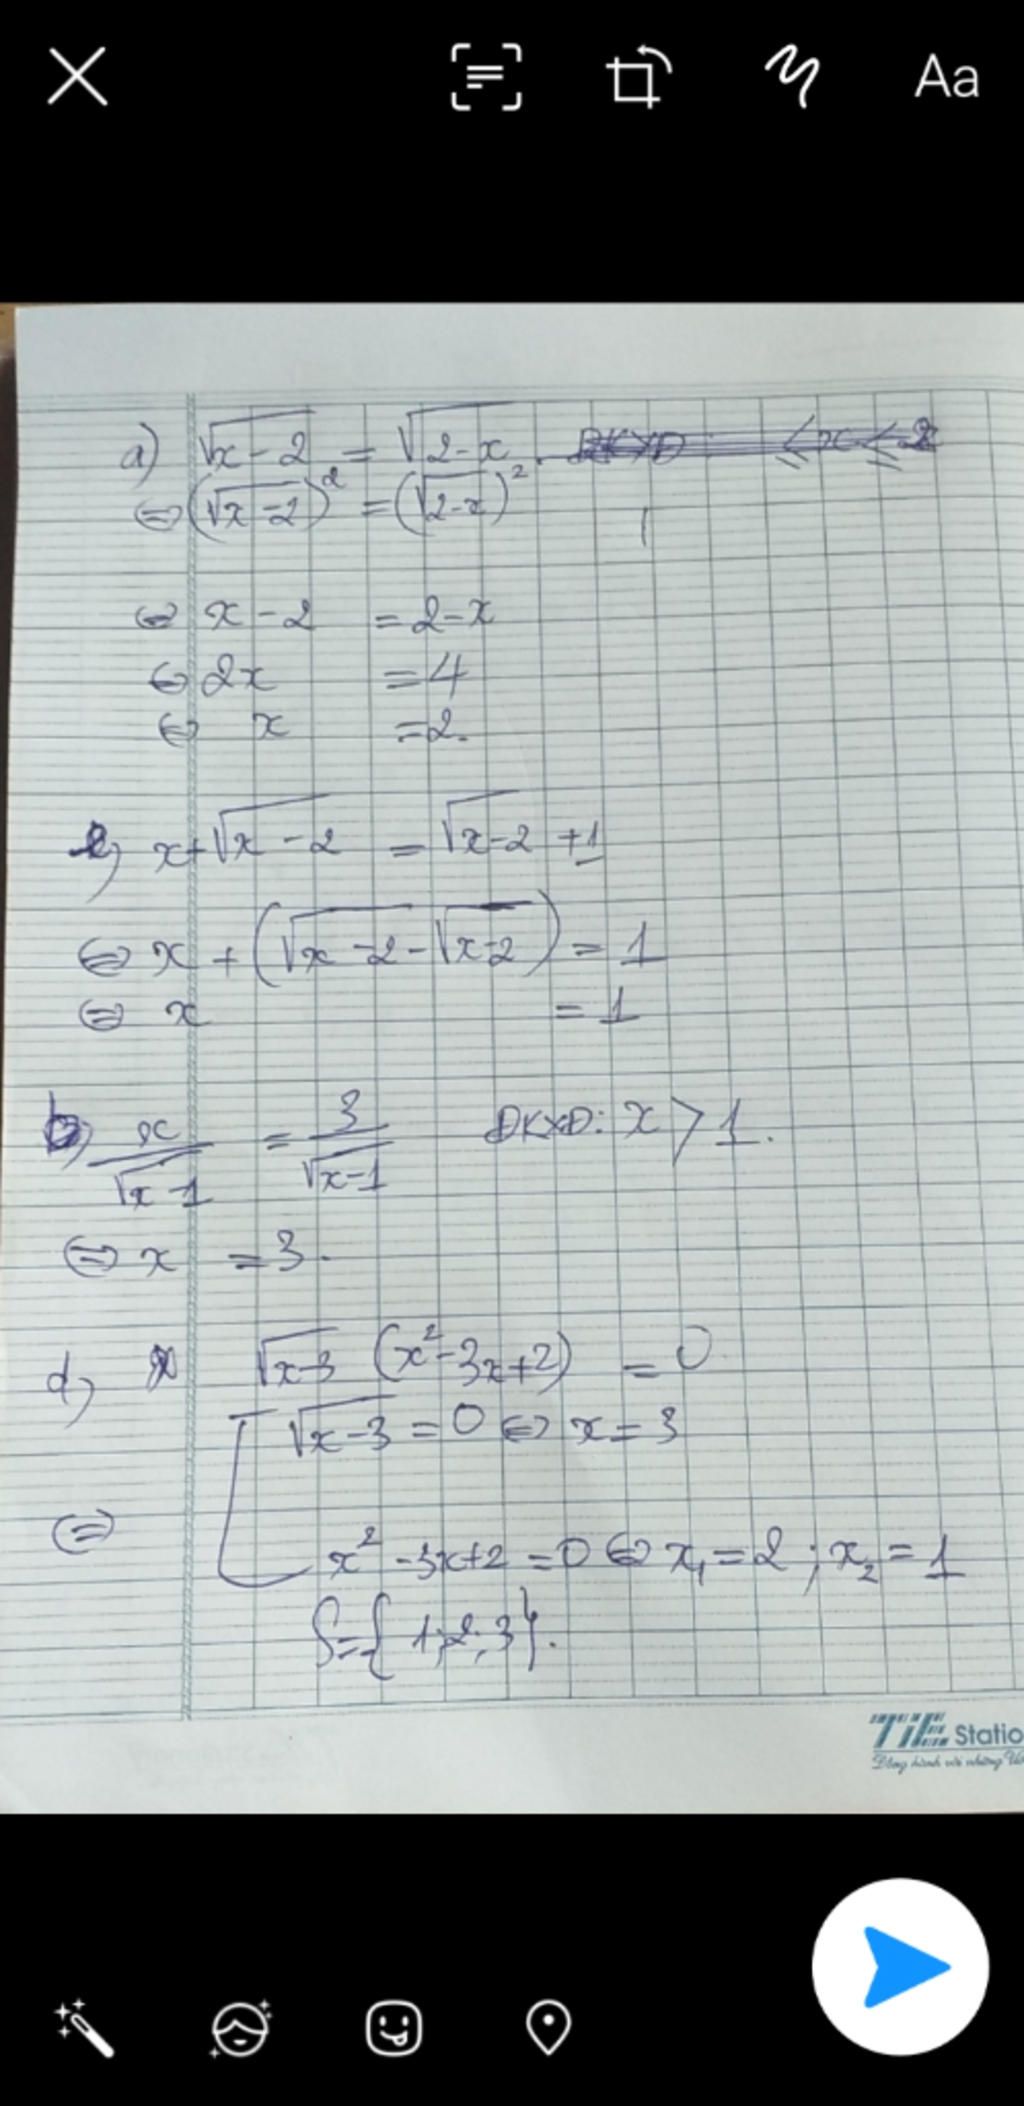 Aa
a) √(x-2) = √(2-x)
⇔ (√(x-2))² = (√(2-x))²
⇔ x-2 = 2-x
⇔ 2x = 4
⇔ x = 2.
x+√(x-2) = √(x-2) +1
⇔ x + (√(x-2) - √(x-2)) = 1
⇔ x = 1
b) x/√(x-1) = 3/√(x-1) ĐKXĐ: x > 1.
⇔ x = 3.
d) √(x-3) (x²-3x+2) = 0
√(x-3) = 0 ⇔ x = 3
⇔
x²-3x+2 = 0 ⇔ x₁ = 2 ; x₂ = 1
S = { 1; 2; 3}.
TiE Statio